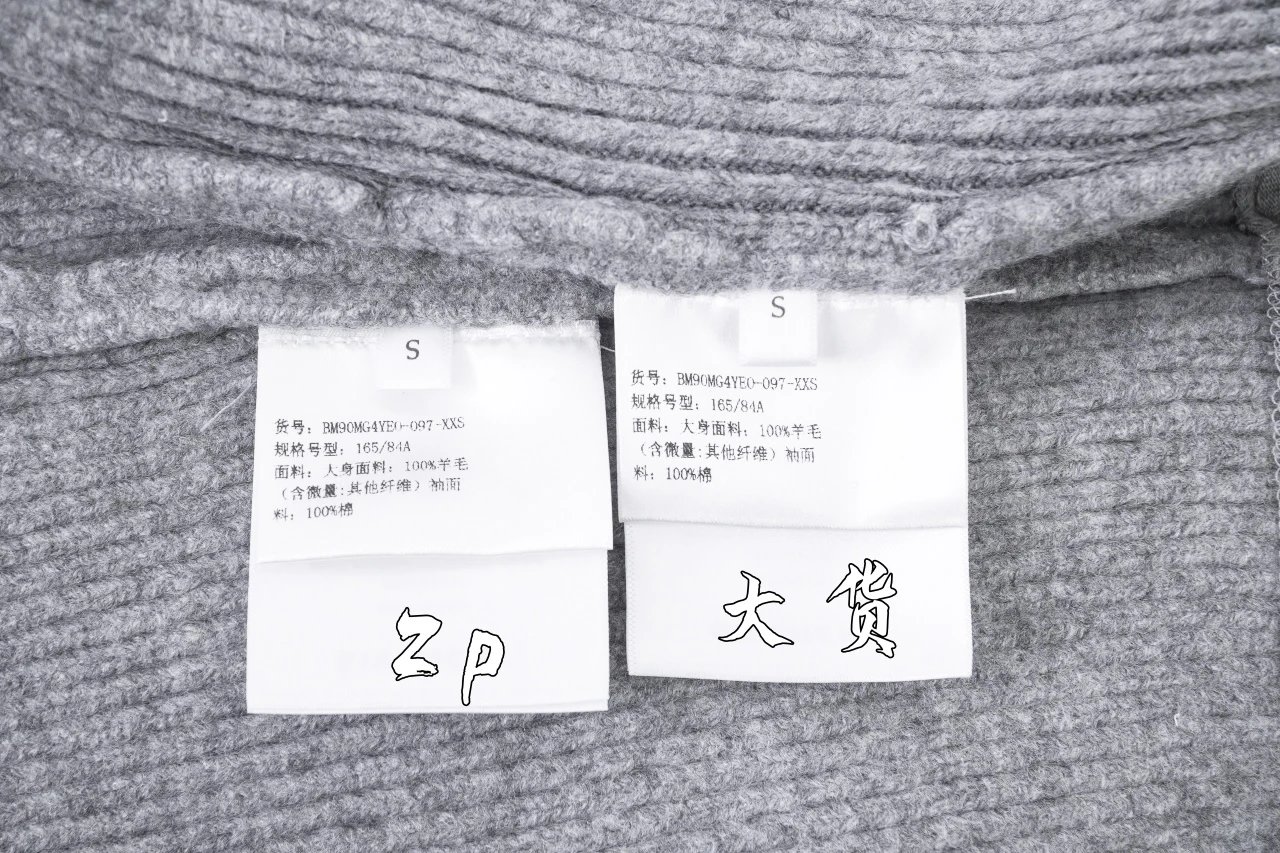 S
货号: BM90MG4YE0-097-XXS
规格号型: 165/84A
面料: 大身面料: 100%羊毛
(含微量:其他纤维) 袖面
料: 100%棉
zp
S
货号: BM90MG4YE0-097-XXS
规格号型: 165/84A
面料: 大身面料: 100%羊毛
(含微量:其他纤维) 袖面
料: 100%棉
大货